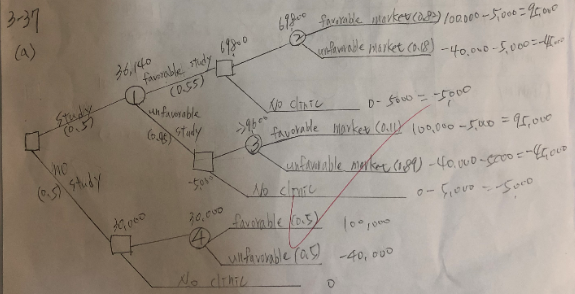 3-37
(a)
36,140
Study
(0.5)
1
favorable study
(0.55)
69,800
69,800
2
favorable market (0.82) 100,000-5,000=95,000
unfavorable market (0.18) -40,000-5,000=-45,000
No clinic 0-5000=-5,000
unfavorable study
(0.45)
-5,000
3
favorable market (0.11) 100,000-5,000=95,000
unfavorable market (0.89) -40,000-5000=-45,000
No clinic 0-5,000=-5,000
no study
(0.5)
30,000
30,000
4
favorable (0.5) 100,000
unfavorable (0.5) -40,000
No clinic 0